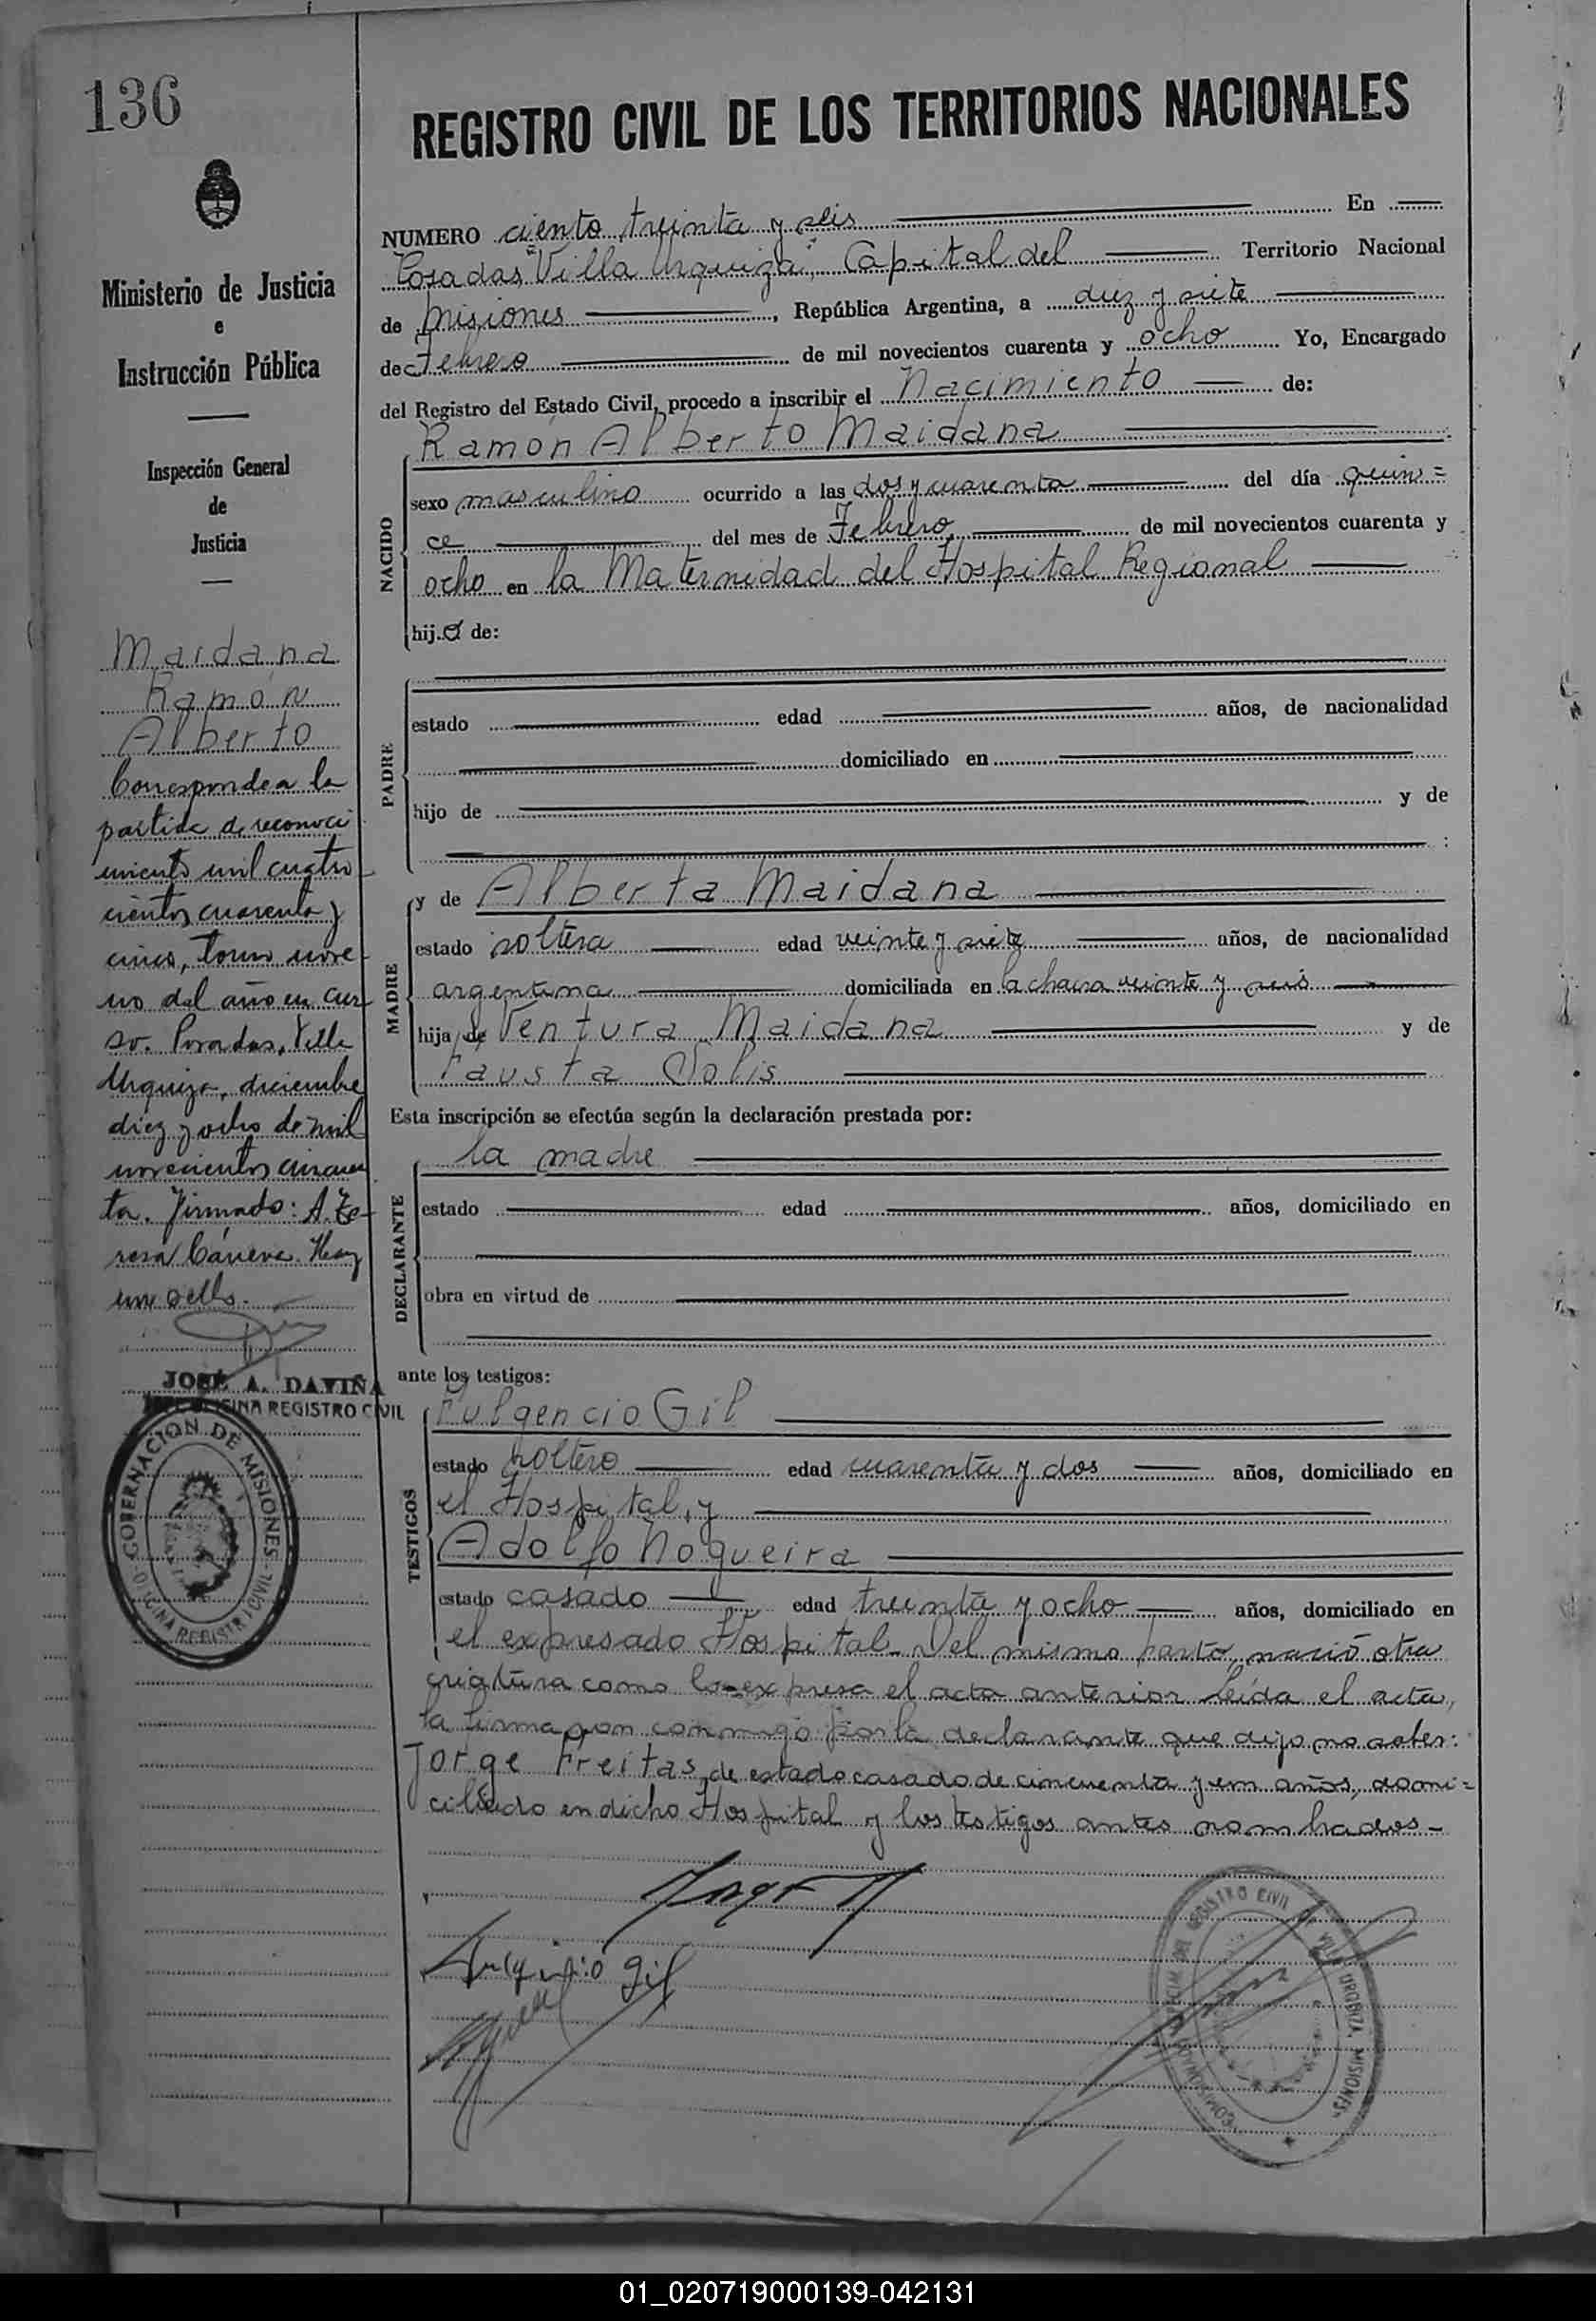 136
REGISTRO CIVIL DE LOS TERRITORIOS NACIONALES
Ministerio de Justicia
e
Instrucción Pública
Inspección General
de
Justicia
Maidana
Ramón
Alberto
Corresponde a la
partida de reconoci
miento mil cuatro
cientos cuarenta y
cinco, tomo nove
no del año en cur
so. Posadas, Villa
Urquiza, diciembre
diez y ocho de mil
novecientos cincuen
ta. Firmado: A. Te-
resa Cáneva. Hay
un sello.
JOSÉ A. DAVIÑA
JEFE OFICINA REGISTRO CIVIL
GOBERNACION DE MISIONES - OFICINA REGISTRO CIVIL -
NUMERO ciento treinta y seis En
Posadas, "Villa Urquiza", Capital del Territorio Nacional
de Misiones, República Argentina, a diez y siete
de Febrero de mil novecientos cuarenta y ocho Yo, Encargado
del Registro del Estado Civil, procedo a inscribir el Nacimiento de:
Ramón Alberto Maidana
NACIDO
sexo masculino ocurrido a las dos y cuarenta del día quin=
ce del mes de Febrero de mil novecientos cuarenta y
ocho en la Maternidad del Hospital Regional
hijo de:
PADRE
estado edad años, de nacionalidad
domiciliado en
hijo de y de
:
MADRE
y de Alberta Maidana
estado soltera edad veinte y siete años, de nacionalidad
argentina domiciliada en la chacra veinte y seis
hija de Ventura Maidana y de
Fausta Solis
Esta inscripción se efectúa según la declaración prestada por:
DECLARANTE
la madre
estado edad años, domiciliado en
obra en virtud de
ante los testigos:
TESTIGOS
Fulgencio Gil
estado soltero edad cuarenta y dos años, domiciliado en
el Hospital, y
Adolfo Nogueira
estado casado edad treinta y ocho años, domiciliado en
el expresado Hospital. Del mismo parto, nació otra
criatura como lo expresa el acta anterior. Leída el acta,
la firmaron conmigo por la declarante que dijo no saber:
Jorge Freitas, de estado casado de cincuenta y un años, domi=
ciliado en dicho Hospital y los testigos antes nombrados-
Gil
REGISTRO CIVIL DE VILLA URQUIZA, MISIONES
01_020719000139-042131